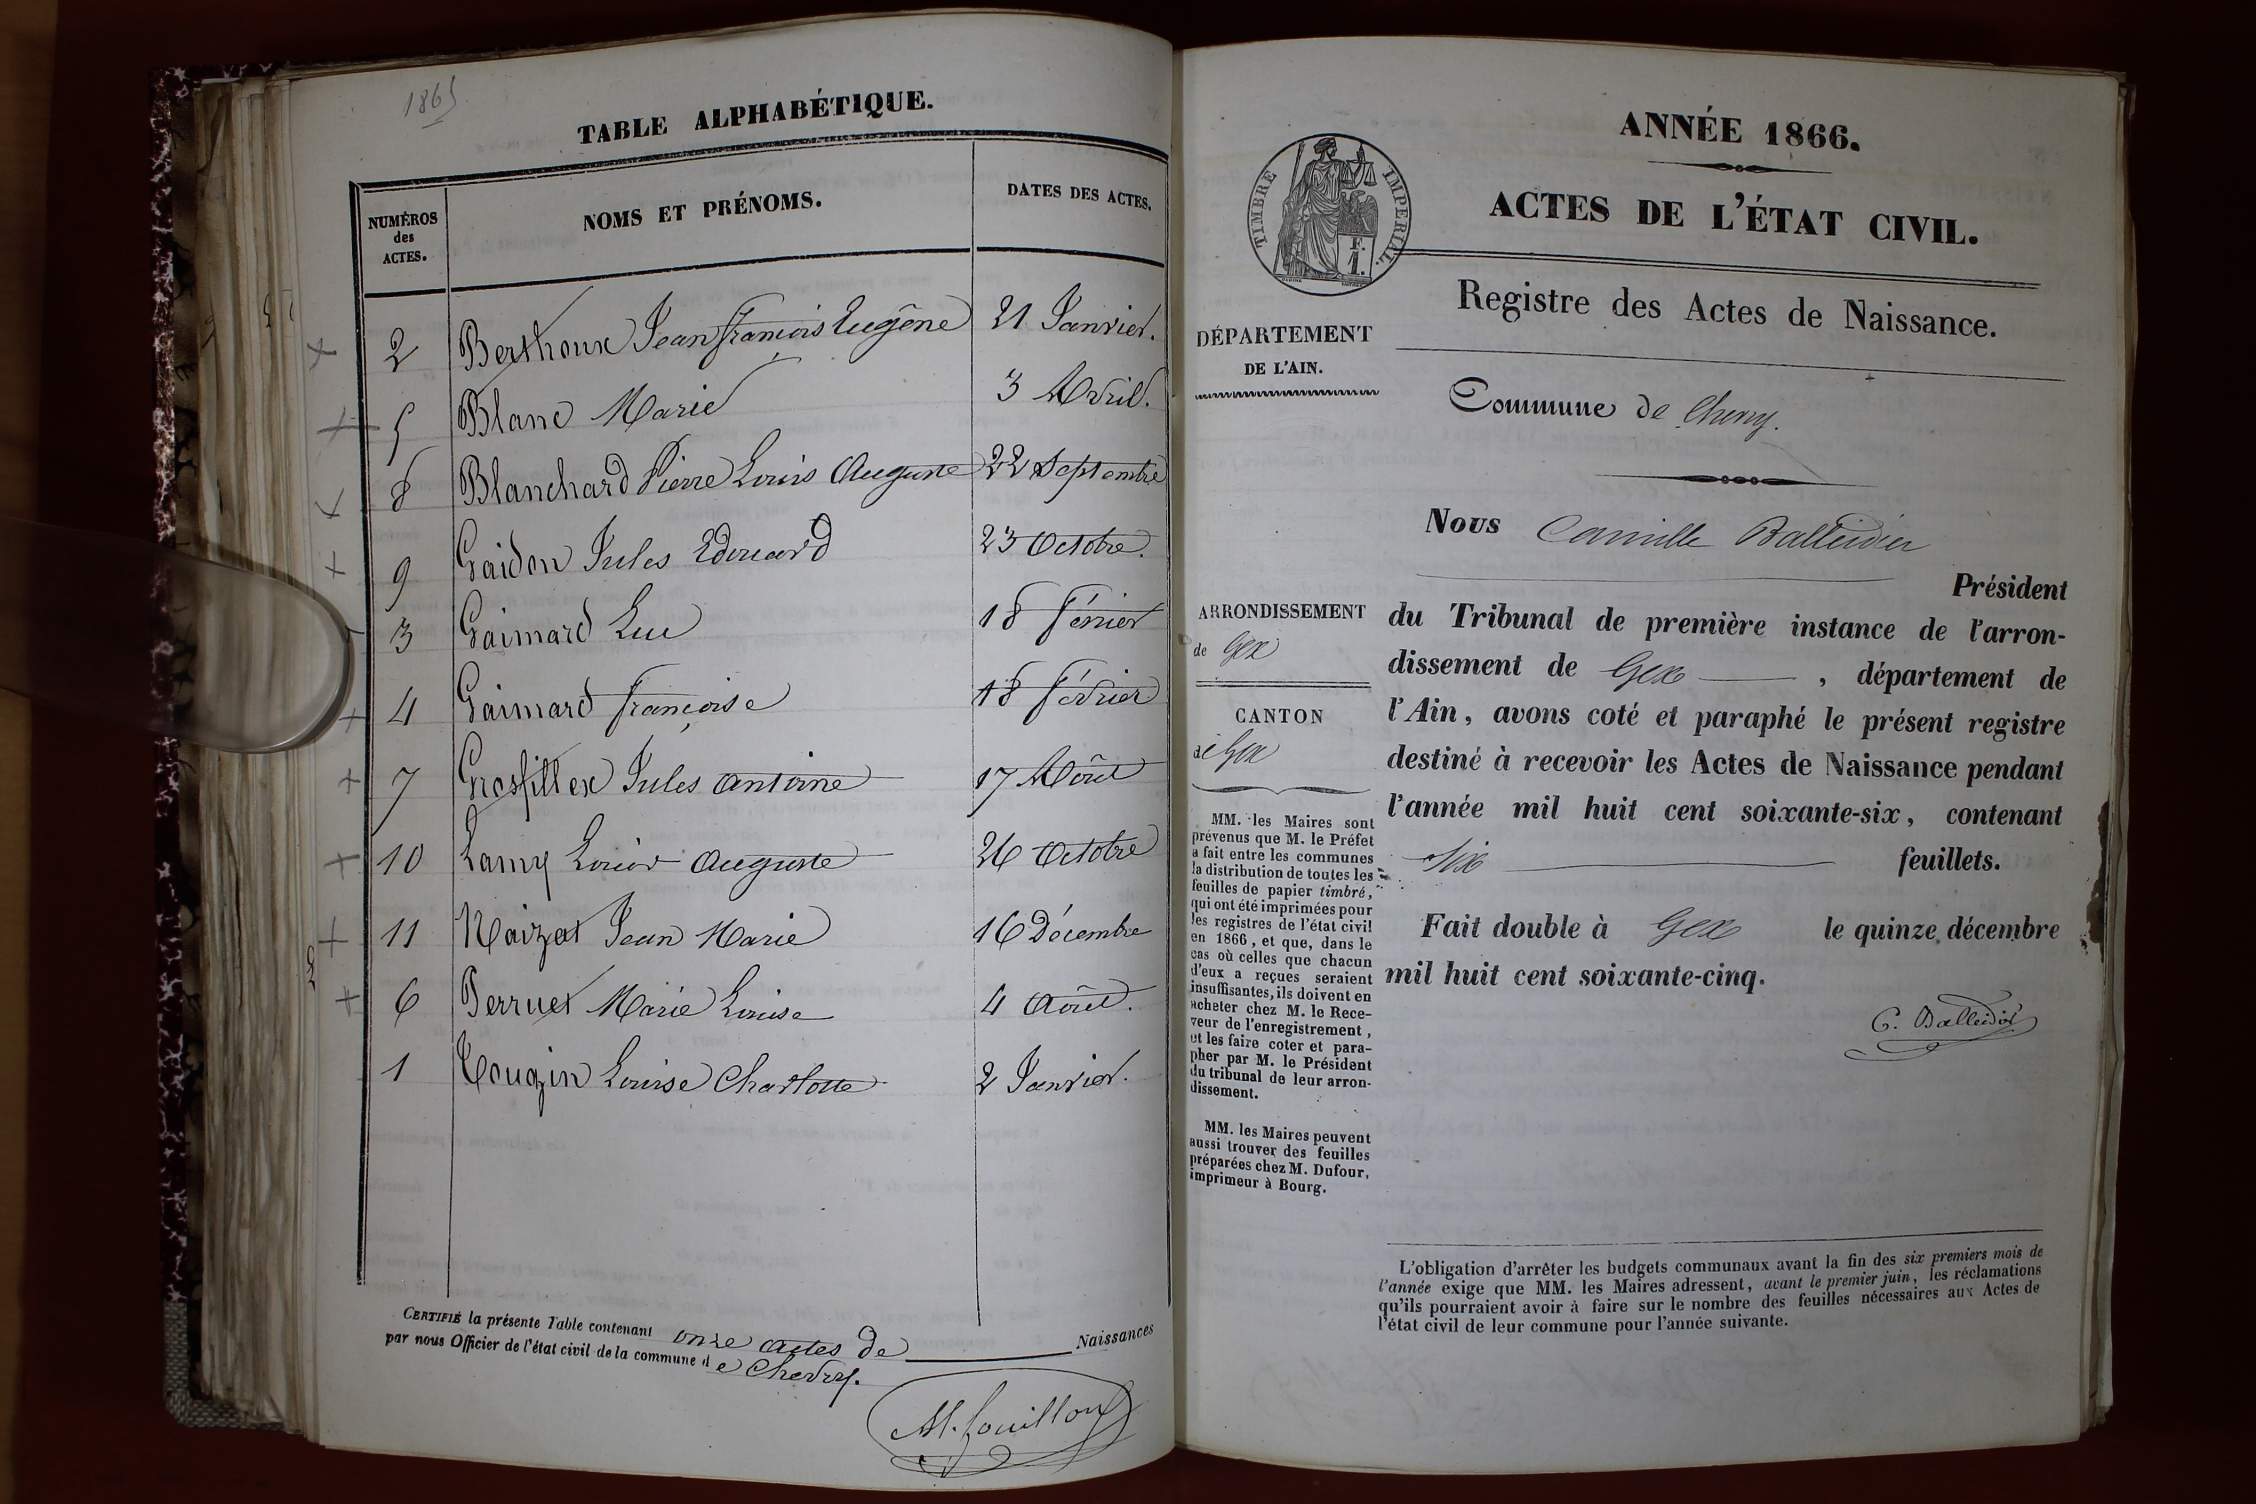 1865
TABLE ALPHABÉTIQUE.
NUMÉROS
des
ACTES.
NOMS ET PRÉNOMS.
DATES DES ACTES.
2 Berthoux Jean François Eugène 21 Janvier.
5 Blanc Marie 3 Avril.
8 Blanchard Pierre Louis Auguste 22 Septembre
9 Gaidon Jules Edouard 23 Octobre.
3 Gaimard Luc 18 Février
4 Gaimard Françoise 18 Février
7 Grosfillex Jules Antoine 17 Août
10 Lamy Louis Auguste 26 Octobre
11 Naizot Jean Marie 16 Décembre
6 Perruet Marie Louise 4 Août.
1 Tougin Louise Charlotte 2 Janvier.
CERTIFIÉ la présente Table contenant onze actes de Naissances
par nous Officier de l'état civil de la commune de Chevry.
M. Fouilloux
ANNÉE 1866.
ACTES DE L'ÉTAT CIVIL.
TIMBRE IMPERIAL.
F.
1.
Registre des Actes de Naissance.
DÉPARTEMENT
DE L'AIN.
Commune de Chevry.
Nous Camille Balleidier
Président
ARRONDISSEMENT
de Gex
CANTON
de Gex
du Tribunal de première instance de l'arron-
dissement de Gex, département de
l'Ain, avons coté et paraphé le présent registre
destiné à recevoir les Actes de Naissance pendant
l'année mil huit cent soixante-six, contenant
six feuillets.
Fait double à Gex le quinze décembre
mil huit cent soixante-cinq.
C. Balleidier
MM. les Maires sont
prévenus que M. le Préfet
a fait entre les communes
la distribution de toutes les
feuilles de papier timbré,
qui ont été imprimées pour
les registres de l'état civil
en 1866, et que, dans le
cas où celles que chacun
d'eux a reçues seraient
insuffisantes, ils doivent en
acheter chez M. le Rece-
veur de l'enregistrement,
et les faire coter et para-
pher par M. le Président
du tribunal de leur arron-
dissement.
MM. les Maires peuvent
aussi trouver des feuilles
préparées chez M. Dufour,
imprimeur à Bourg.
L'obligation d'arrêter les budgets communaux avant la fin des six premiers mois de
l'année exige que MM. les Maires adressent, avant le premier juin, les réclamations
qu'ils pourraient avoir à faire sur le nombre des feuilles nécessaires aux Actes de
l'état civil de leur commune pour l'année suivante.